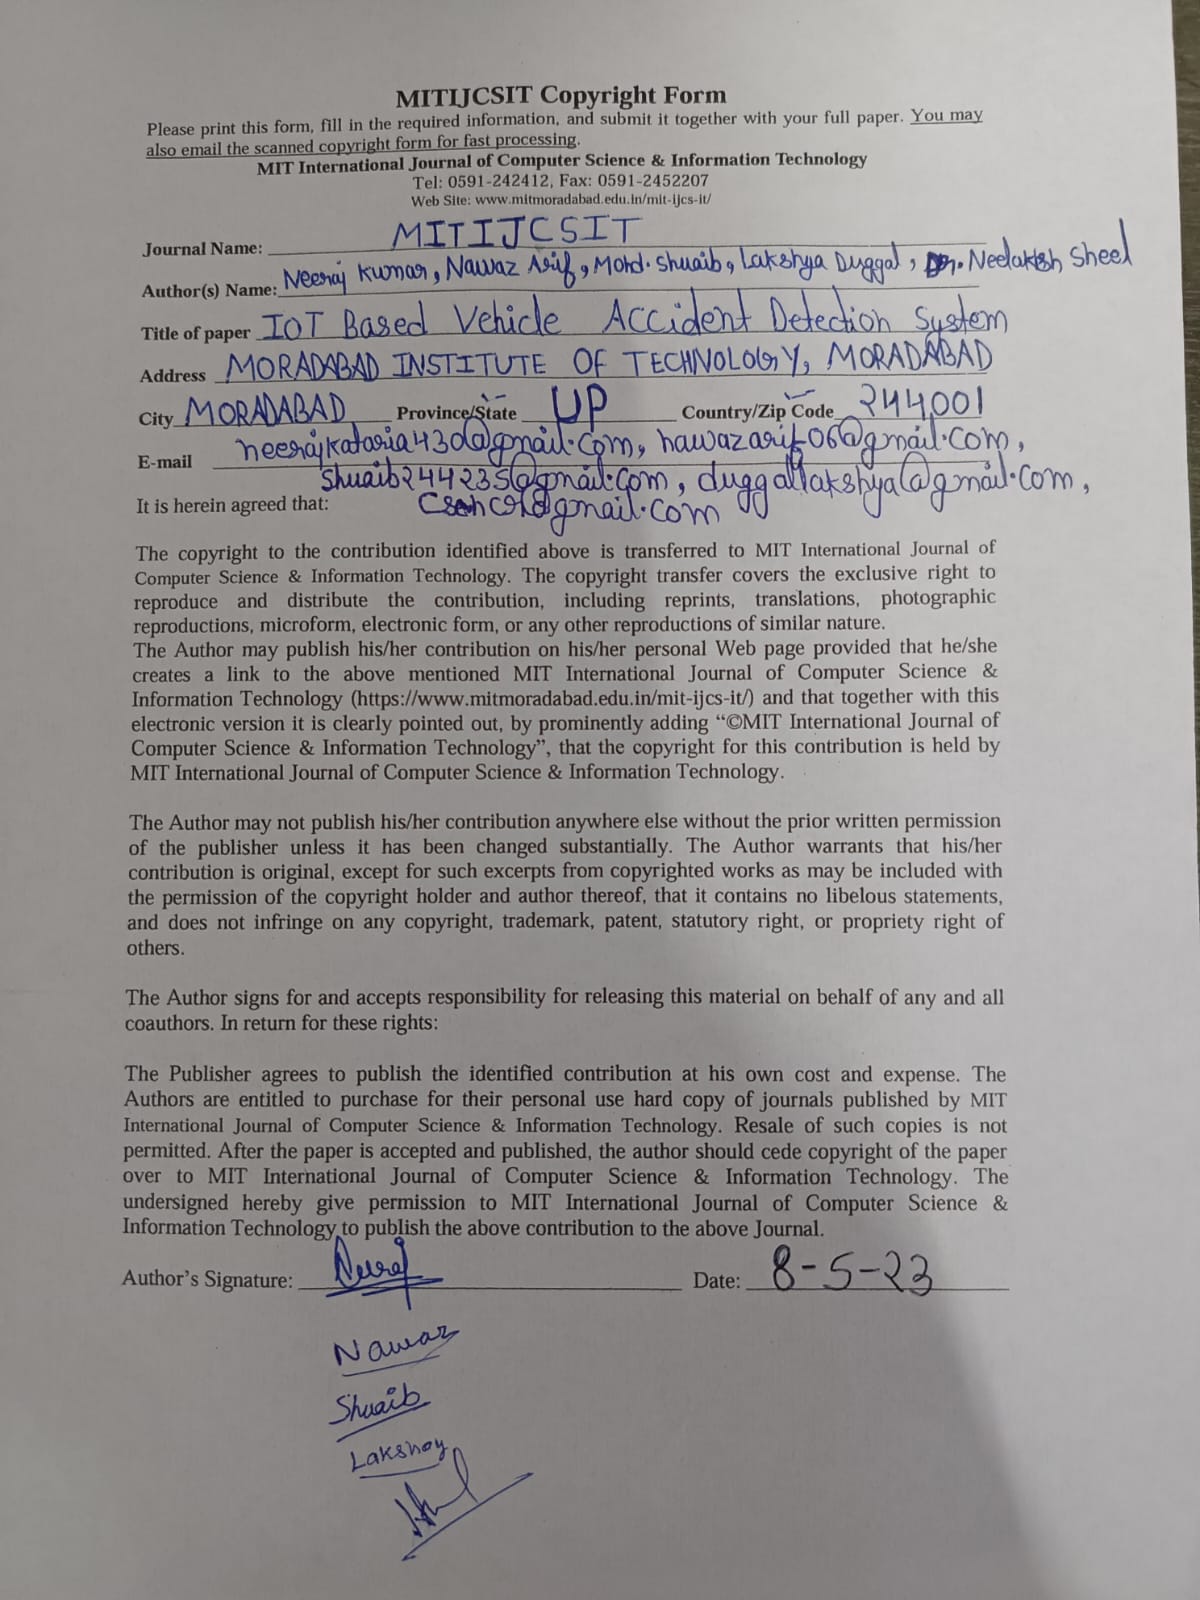 MITIJCSIT Copyright Form
Please print this form, fill in the required information, and submit it together with your full paper. You may
also email the scanned copyright form for fast processing.
MIT International Journal of Computer Science & Information Technology
Tel: 0591-242412, Fax: 0591-2452207
Web Site: www.mitmoradabad.edu.in/mit-ijcs-it/
Journal Name: MITIJCSIT
Author(s) Name: Neeraj Kumar, Nawaz Arif, Mohd. Shuaib, Lakshya Duggal, Dr. Neelaksh Sheel
Title of paper IOT Based Vehicle Accident Detection System
Address MORADABAD INSTITUTE OF TECHNOLOGY, MORADABAD
City MORADABAD Province/State UP Country/Zip Code 244001
E-mail neerajkataria430@gmail.com, nawazarif06@gmail.com,
shuaib244235@gmail.com, duggallakshya@gmail.com,
It is herein agreed that:
The copyright to the contribution identified above is transferred to MIT International Journal of
Computer Science & Information Technology. The copyright transfer covers the exclusive right to
reproduce and distribute the contribution, including reprints, translations, photographic
reproductions, microform, electronic form, or any other reproductions of similar nature.
The Author may publish his/her contribution on his/her personal Web page provided that he/she
creates a link to the above mentioned MIT International Journal of Computer Science &
Information Technology (https://www.mitmoradabad.edu.in/mit-ijcs-it/) and that together with this
electronic version it is clearly pointed out, by prominently adding “©MIT International Journal of
Computer Science & Information Technology”, that the copyright for this contribution is held by
MIT International Journal of Computer Science & Information Technology.
The Author may not publish his/her contribution anywhere else without the prior written permission
of the publisher unless it has been changed substantially. The Author warrants that his/her
contribution is original, except for such excerpts from copyrighted works as may be included with
the permission of the copyright holder and author thereof, that it contains no libelous statements,
and does not infringe on any copyright, trademark, patent, statutory right, or propriety right of
others.
The Author signs for and accepts responsibility for releasing this material on behalf of any and all
coauthors. In return for these rights:
The Publisher agrees to publish the identified contribution at his own cost and expense. The
Authors are entitled to purchase for their personal use hard copy of journals published by MIT
International Journal of Computer Science & Information Technology. Resale of such copies is not
permitted. After the paper is accepted and published, the author should cede copyright of the paper
over to MIT International Journal of Computer Science & Information Technology. The
undersigned hereby give permission to MIT International Journal of Computer Science &
Information Technology to publish the above contribution to the above Journal.
Author’s Signature: Neeraj Date: 8-5-23
Nawaz
Shuaib
Lakshay